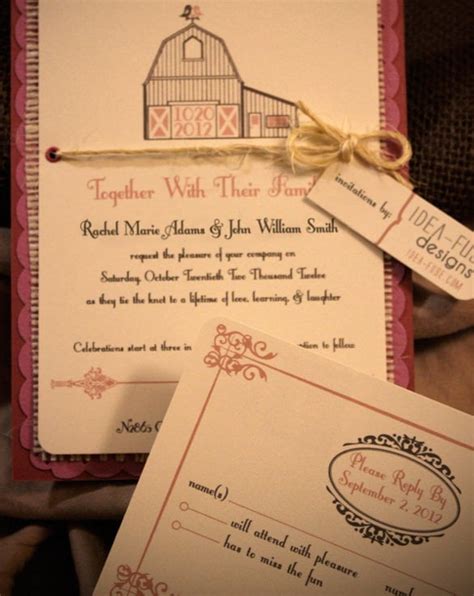 1020
2012
Together With Their
Rachel Marie Adams & John William Smith
request the pleasure of your company on
Saturday, October Twentieth Two Thousand Twelve
as they tie the knot to a lifetime of love, learning, & laughter
Celebrations start at three in
to follow
invitations by:
designs
Please Reply By
September 2, 2012
name(s)
will attend with pleasure
has to miss the fun
name
name